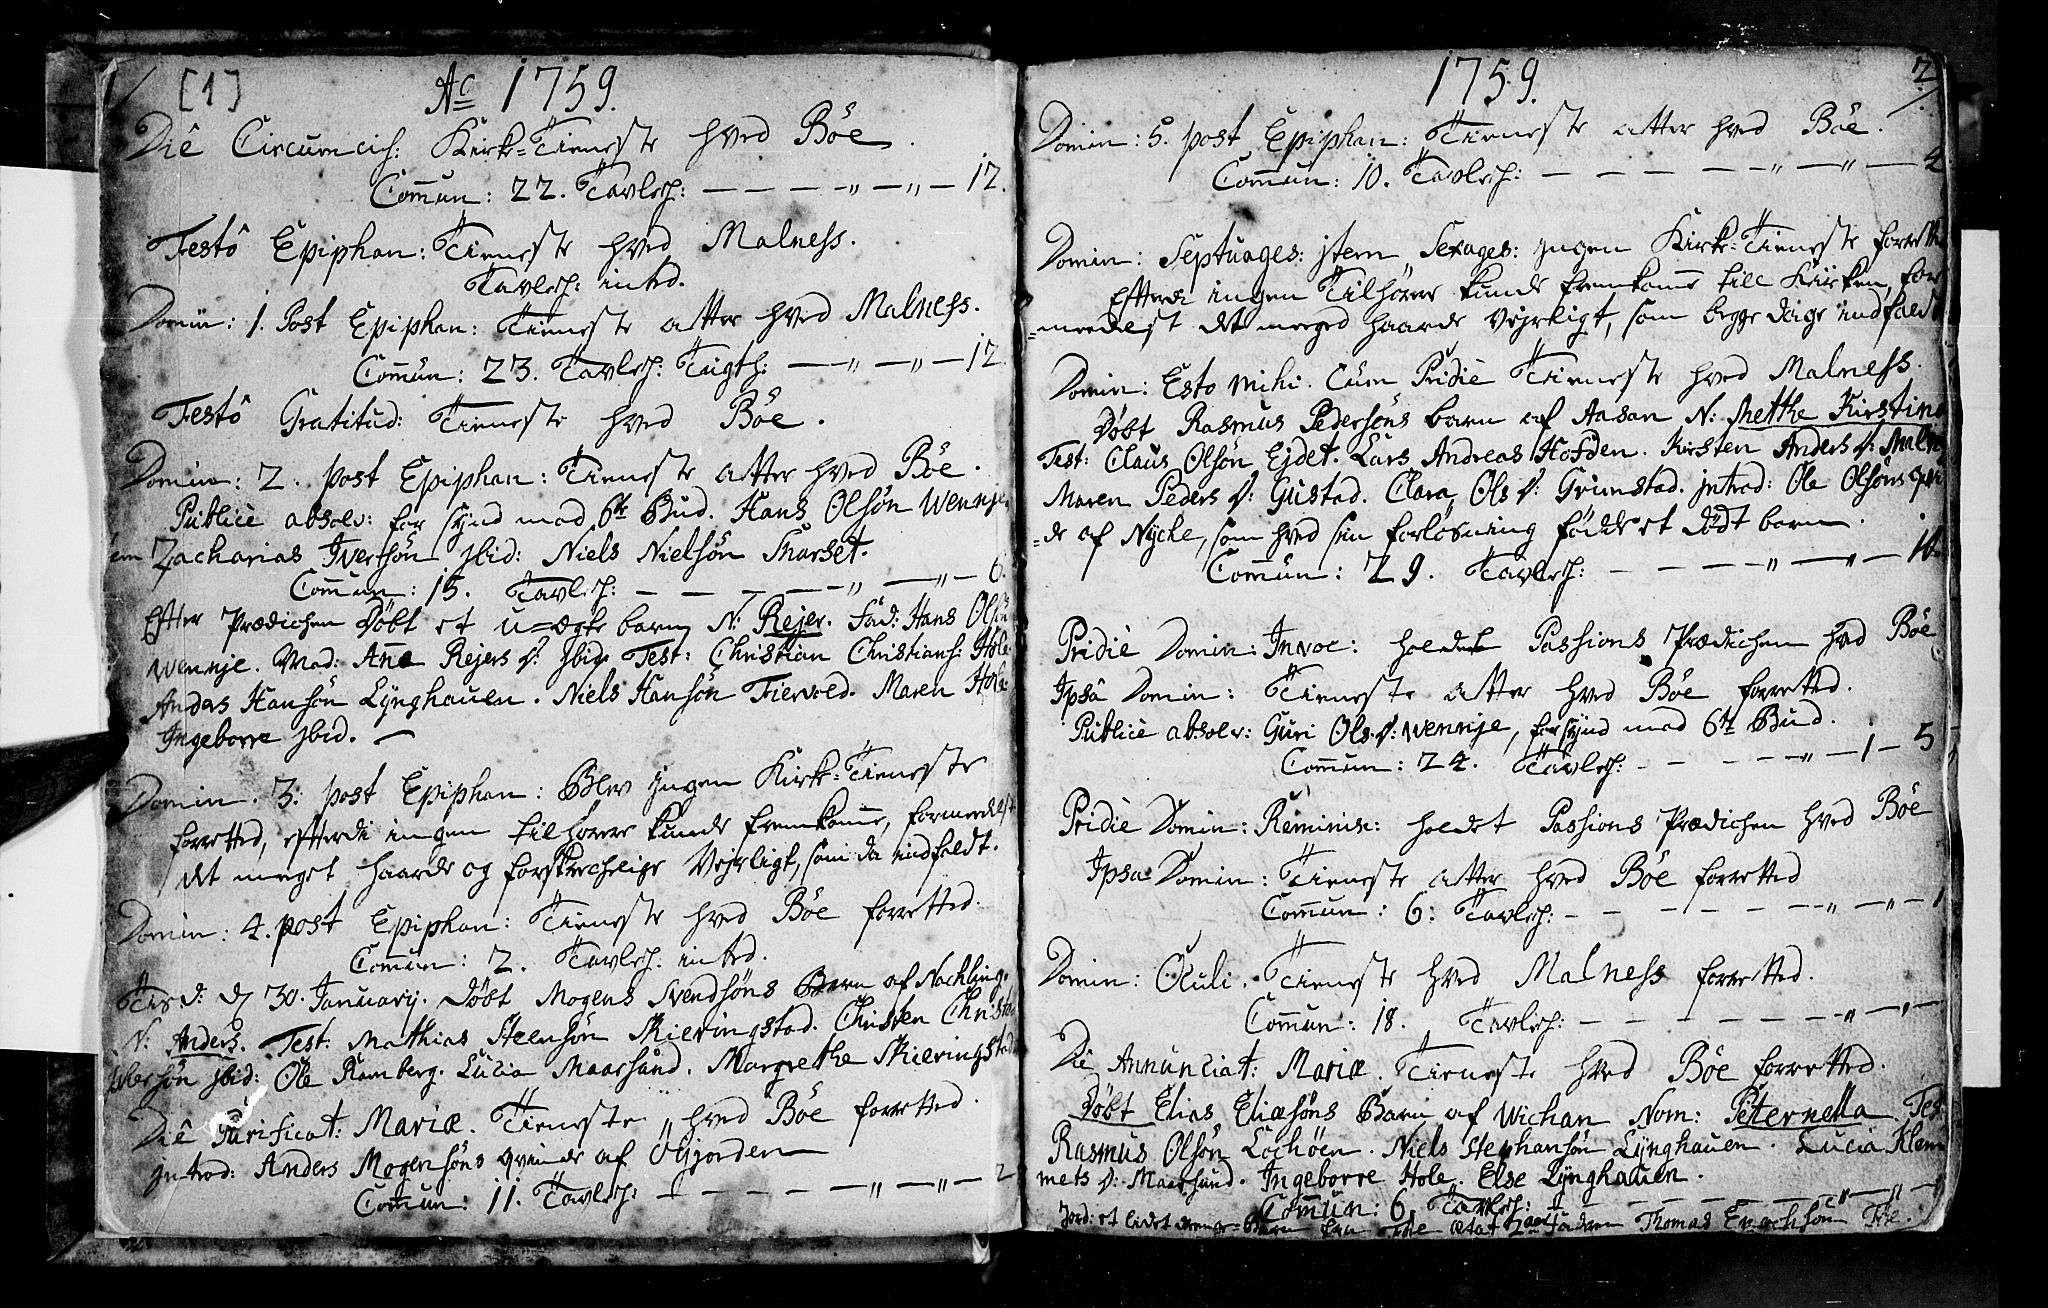 [1]
Aº 1759.
Diê Circumcis: Kirk-Tieneste hved Böe.
Com̄un: 22. Tavlesch: — — — — „ — „ — 12.
Festô Epiphan: Tieneste hved Malness.
Tavlesch: inted.
Domin: 1. Post Epiphan: Tieneste atter hved Malness.
Com̄un: 23. Tavlesch: Tugth: — „ — „ — 12.
Festô Gratitud: Tieneste hved Böe.
Domin: 2. post Epiphan: Tieneste atter hved Böe.
Publicè absolv: for synd mod 6te Bud. Hans Olsön Wennje
Zacharias Iversön ibid: Niels Nielsön Skarset.
Com̄un: 15. Tavlesch: — — — — — „ — „ — 6.
Efter Prædichen Döbt et u-ægte barn N: Rejer. Fad: Hans Olsön
Wennje. Mod: Ane Rejers D: ibid. Test: Christian Christians: Hole
Anders Hansön Lÿnghauen. Niels Hansön Fiervold. Maren Hole
Ingeborre ibid. —
Domin. 3: post Epiphan: Blev ingen Kirk-Tieneste
forretted, efterdi ingen tilhörere kunde fremkom̄e, formedelst
det meget haarde og forskrechelige Vejrligt, som da indfaldt.
Domin: 4. post Epiphan: Tieneste hved Böe forretted.
Com̄un: 2. Tavlesch: inted.
Tisd: d 30. Januarij. Döbt Mogens Svendsöns Barn af Nachling.
N: Anders. Test: Mathias Steensön Skieringstad. Christen Christo
phersön ibid: Ole Ramberg. Lucia Maarsund. Margrethe Skieringstad
Diê Purificat: Mariæ. Tieneste hved Böe forretted.
introd: Anders Mogensöns qvinde af Öÿjorden
Com̄un: 11. Tavlesch: — — — — — „ — „ — 2
1759.
2
Domin: 5. post Epiphan: Tieneste atter hved Böe.
Com̄un: 10. Tavlesch: — — — — — „ — „ — 4
Domin: Septuages: item Sexages: ingen Kirk-Tieneste forrett
Efterdi ingen Tilhörere kunde fremkom̄e till Kirken, for
=medelst det meged haarde Vejrligt, som begge dage indfaldt
Domin: Esto mihi. Cum Pridie Tieneste hved Malness.
Döbt Rasmus Pedersöns barn af Aasan N: Methe Kirstine
Test: Claus Olsön Ejdet. Lars Andreas Hofden. Kirsten Anders D: Maln
Maren Peders D: Gustad. Clara Ols D: Grimstad. introd: Ole Olsöns qvin
=de af Nÿcke, som hved sin forlösning födde et dödt barn.
Com̄un: 29. Tavlesch: — — — — „ — „ — 10.
Pridiè Domin: Invoc: holdet Passions Prædichen hved Böe
Ipsâ Domin: Tieneste atter hved Böe forretted.
Publicè absolv: Guri Ols D: Wennje, for synd mod 6te Bud.
Com̄un: 24. Tavlesch: — — — — — „ — 1 — 5
Pridiè Domin: Reminisc: holdet Passions Prædichen hved Böe
Ipsa Domin: Tieneste atter hved Böe forretted
Com̄un: 6: Tavlesch: — — — — — — „ — „ — 1
Domin: Oculi. Tieneste hved Malness forretted.
Com̄un: 18. Tavlesch: — — — — — — „ — „ —
Die Annunciat: Mariæ. Tieneste hved Böe forretted.
Döbt Elias Eliæsöns Barn af Wichan Nom: Peternella Tes
Rasmus Olsön Lochöen. Niels Stephansön Lÿnghauen. Lucia Klem
mets D: Maarsund. Ingeborre Hole. Else Lÿnghauen.
Com̄un: 6. Tavlesch: — — — — — — „ — „ —
Jord: et lidet drenge-Barn fra Føe ætat 2 aar Fadren Thomas Enochsön Føe.